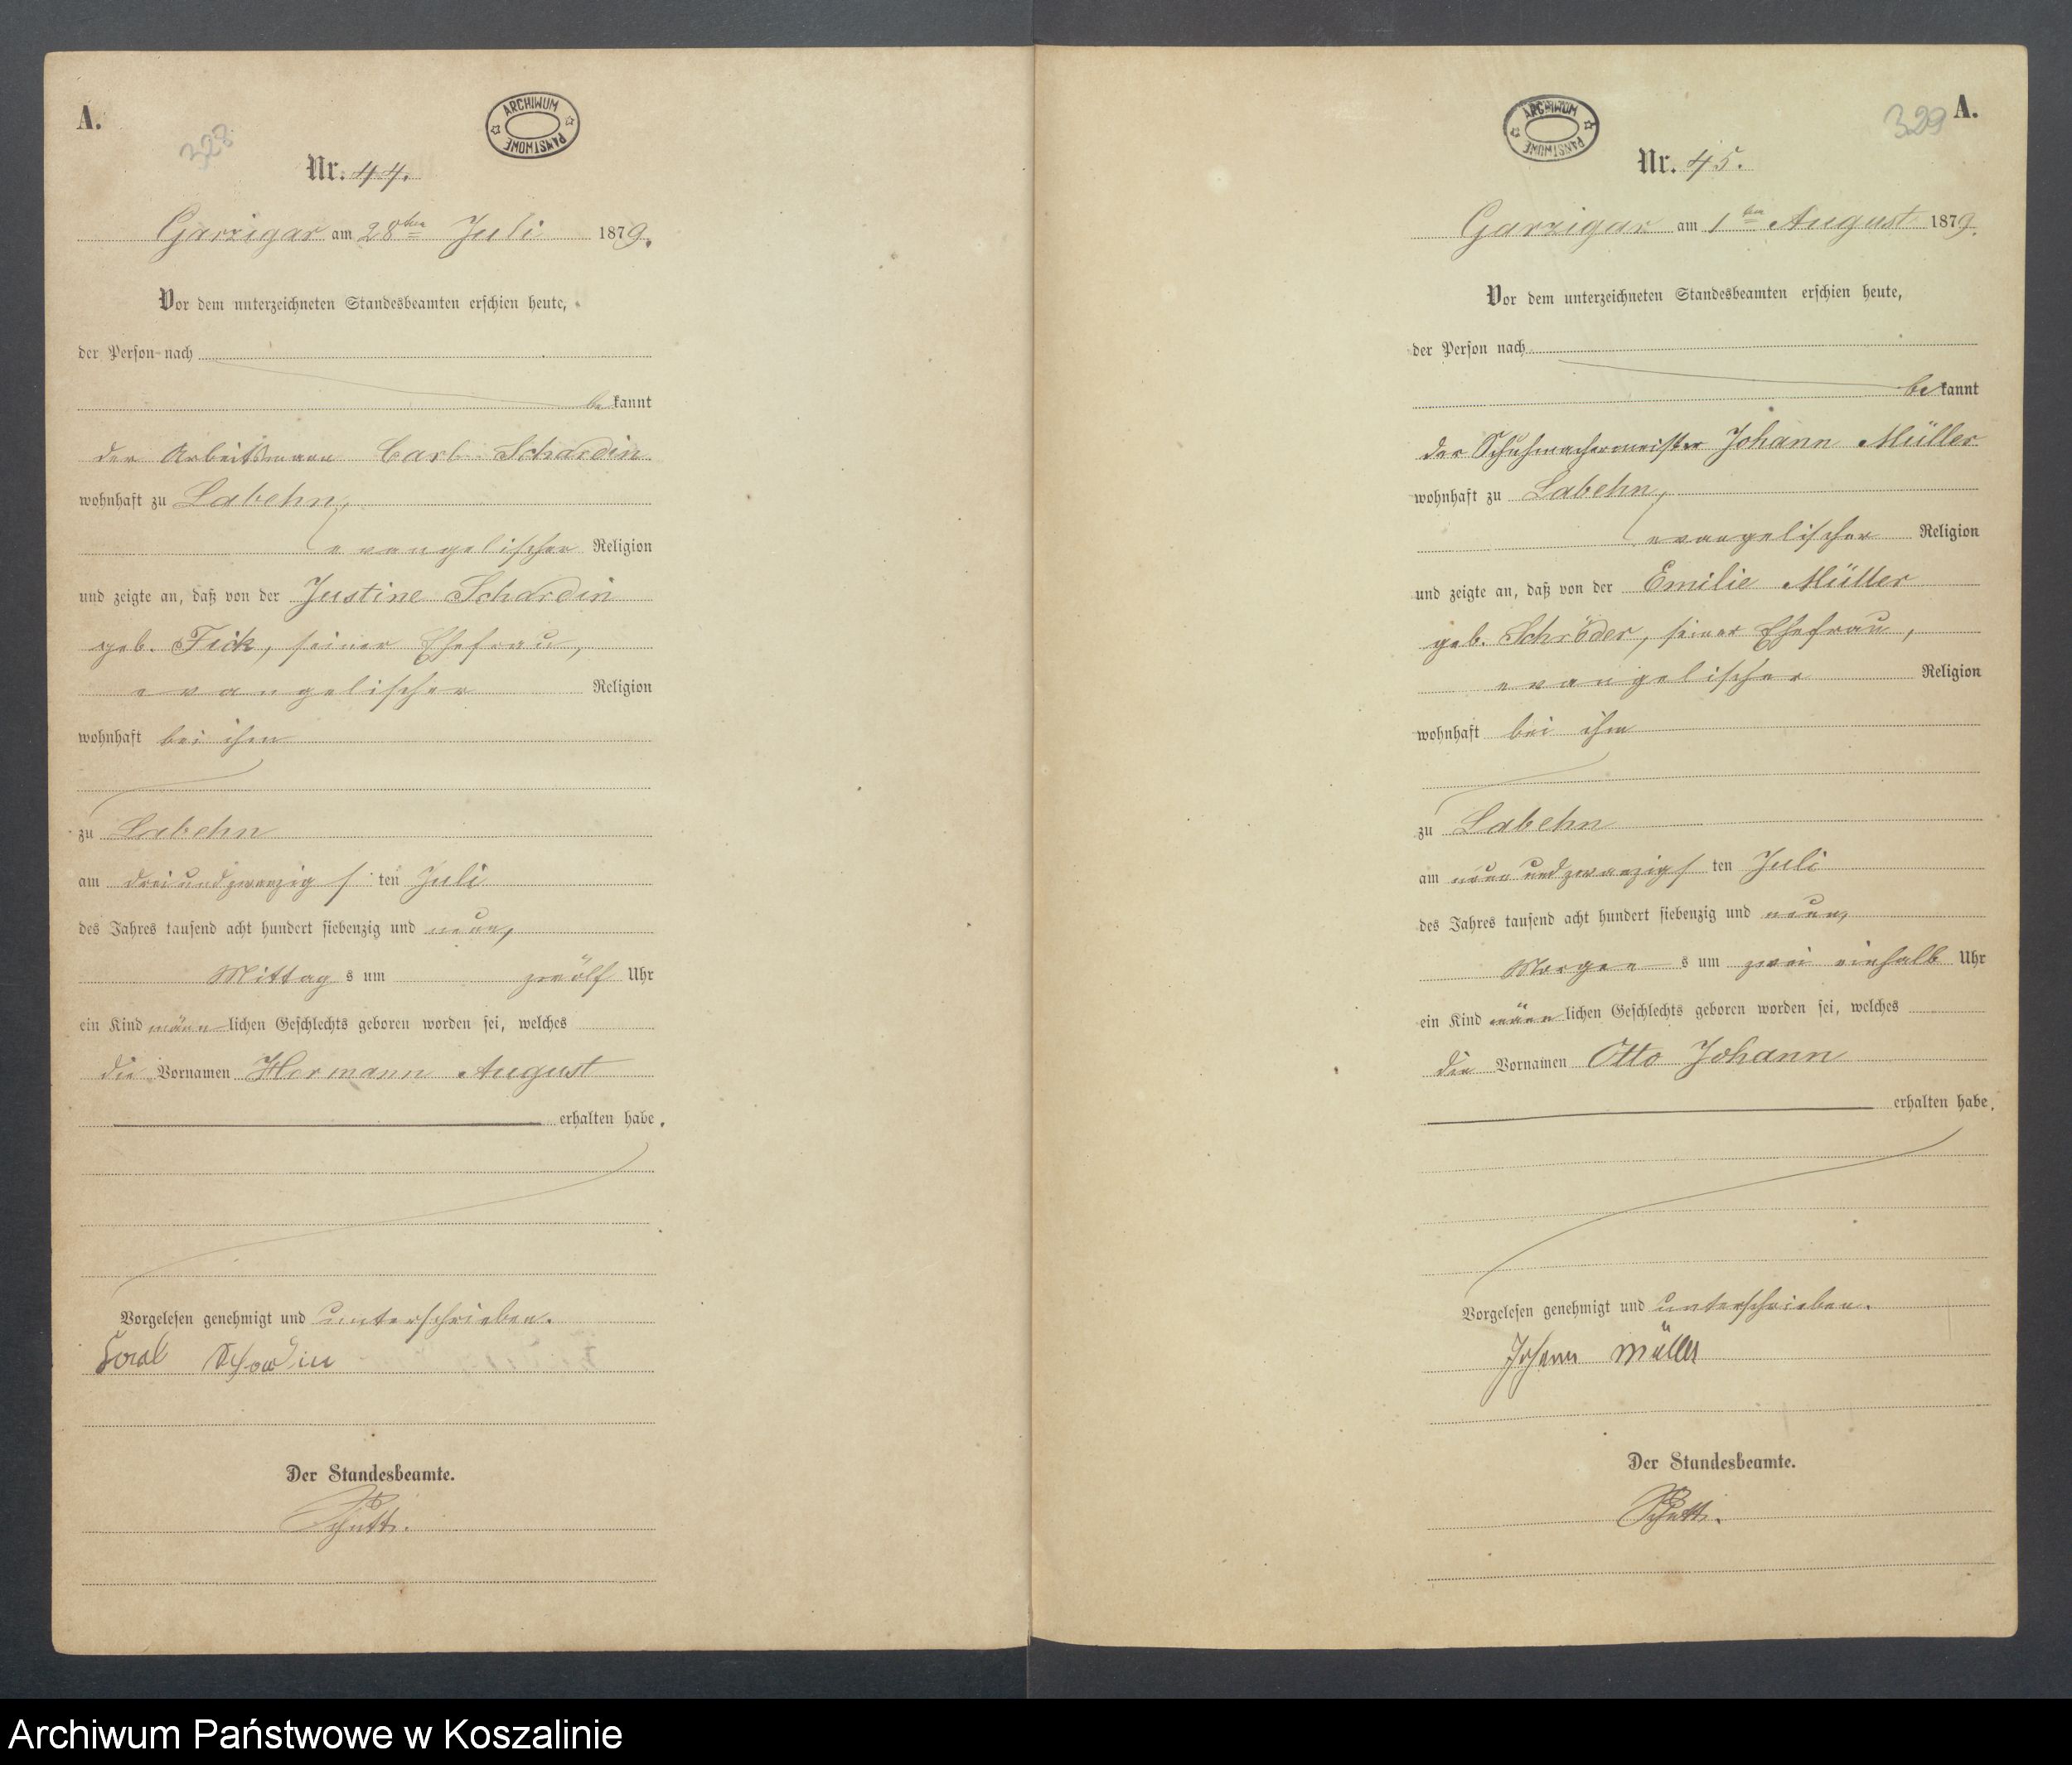 A.
328
ARCHIWUM PAŃSTWOWE
Nr. 44.
Garzigar am 28ten Juli 1879.
Vor dem unterzeichneten Standesbeamten erschien heute,
der Person nach
bekannt
der Arbeitsmann Carl Schardin
wohnhaft zu Labehn,
evangelischer Religion
und zeigte an, daß von der Justine Schardin
geb. Fick, seiner Ehefrau,
evangelischer Religion
wohnhaft bei ihm
zu Labehn
am dreiundzwanzigsten Juli
des Jahres tausend acht hundert siebenzig und neun,
Mittags um zwölf Uhr
ein Kind männlichen Geschlechts geboren worden sei, welches
die Vornamen Hermann August
erhalten habe.
Vorgelesen genehmigt und unterschrieben.
Der Standesbeamte.
A.
329
ARCHIWUM PAŃSTWOWE
Nr. 45.
Garzigar am 1ten August 1879.
Vor dem unterzeichneten Standesbeamten erschien heute,
der Person nach
bekannt
der Schuhmachermeister Johann Müller
wohnhaft zu Labehn,
evangelischer Religion
und zeigte an, daß von der Emilie Müller
geb. Schröder, seiner Ehefrau,
evangelischer Religion
wohnhaft bei ihm
zu Labehn
am neunundzwanzigsten Juli
des Jahres tausend acht hundert siebenzig und neun,
Morgens um zwei einhalb Uhr
ein Kind männlichen Geschlechts geboren worden sei, welches
die Vornamen Otto Johann
erhalten habe.
Vorgelesen genehmigt und unterschrieben.
Johann Müller
Der Standesbeamte.
Archiwum Państwowe w Koszalinie